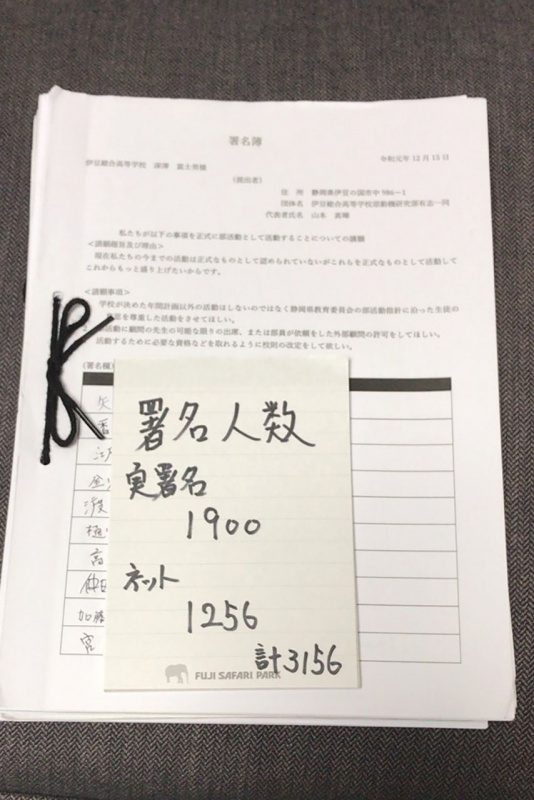 署名簿
伊豆総合高等学校
令和元年12月15日
(提出者)
住 所 静岡県伊豆の国市中986-1
団体名 伊豆総合高等学校原動機研究部有志一同
代表者氏名 山本
私たちが以下の事項を正式に部活動として活動することについての請願
<請願趣旨及び理由>
現在私たちの今までの活動は正式なものとして認められていないがこれらを正式なものとして活動して
これからもっと盛り上げたいからです。
<請願事項>
学校が決めた年間計画以外の活動はしないのではなく静岡県教育委員会の部活動指針に沿った生徒の
を尊重した活動をさせてほしい。
活動に顧問の先生の可能な限りの出席、または部員が依頼をした外部顧問の許可をしてほしい。
活動するために必要な資格などを取れるように校則の改定をして欲しい。
(署名欄)
加藤
署名人数
実署名
1900
ネット
1256
計3156
FUJI SAFARI PARK